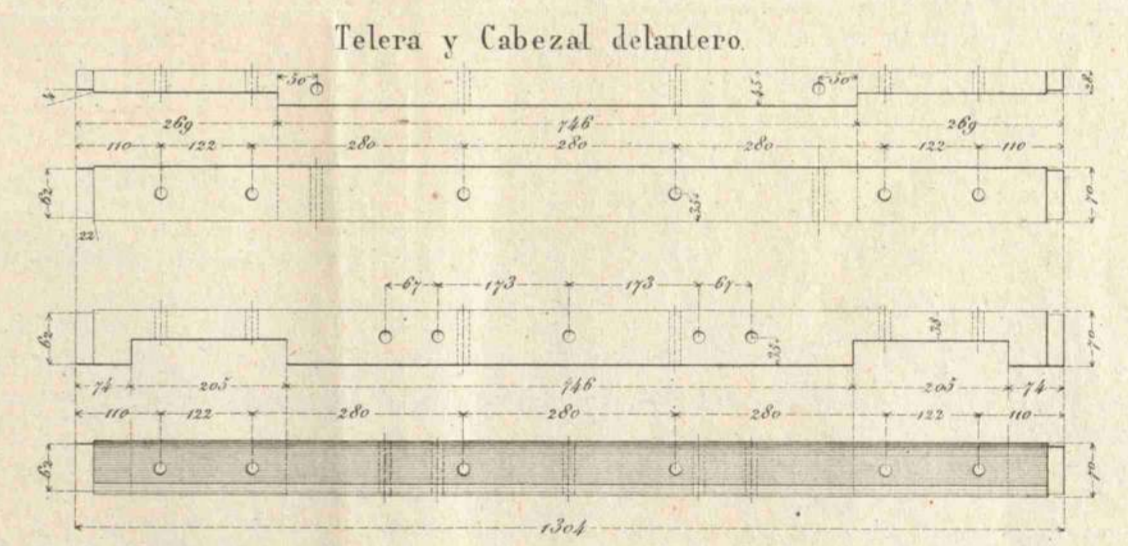 Telera y Cabezal delantero.
50 45 50 28
4
269 746 269
110 122 280 280 280 122 110
62 35 70
22
67 173 173 67
62 38 35 70
74 205 746 205 74
110 122 280 280 280 122 110
62 70
1304